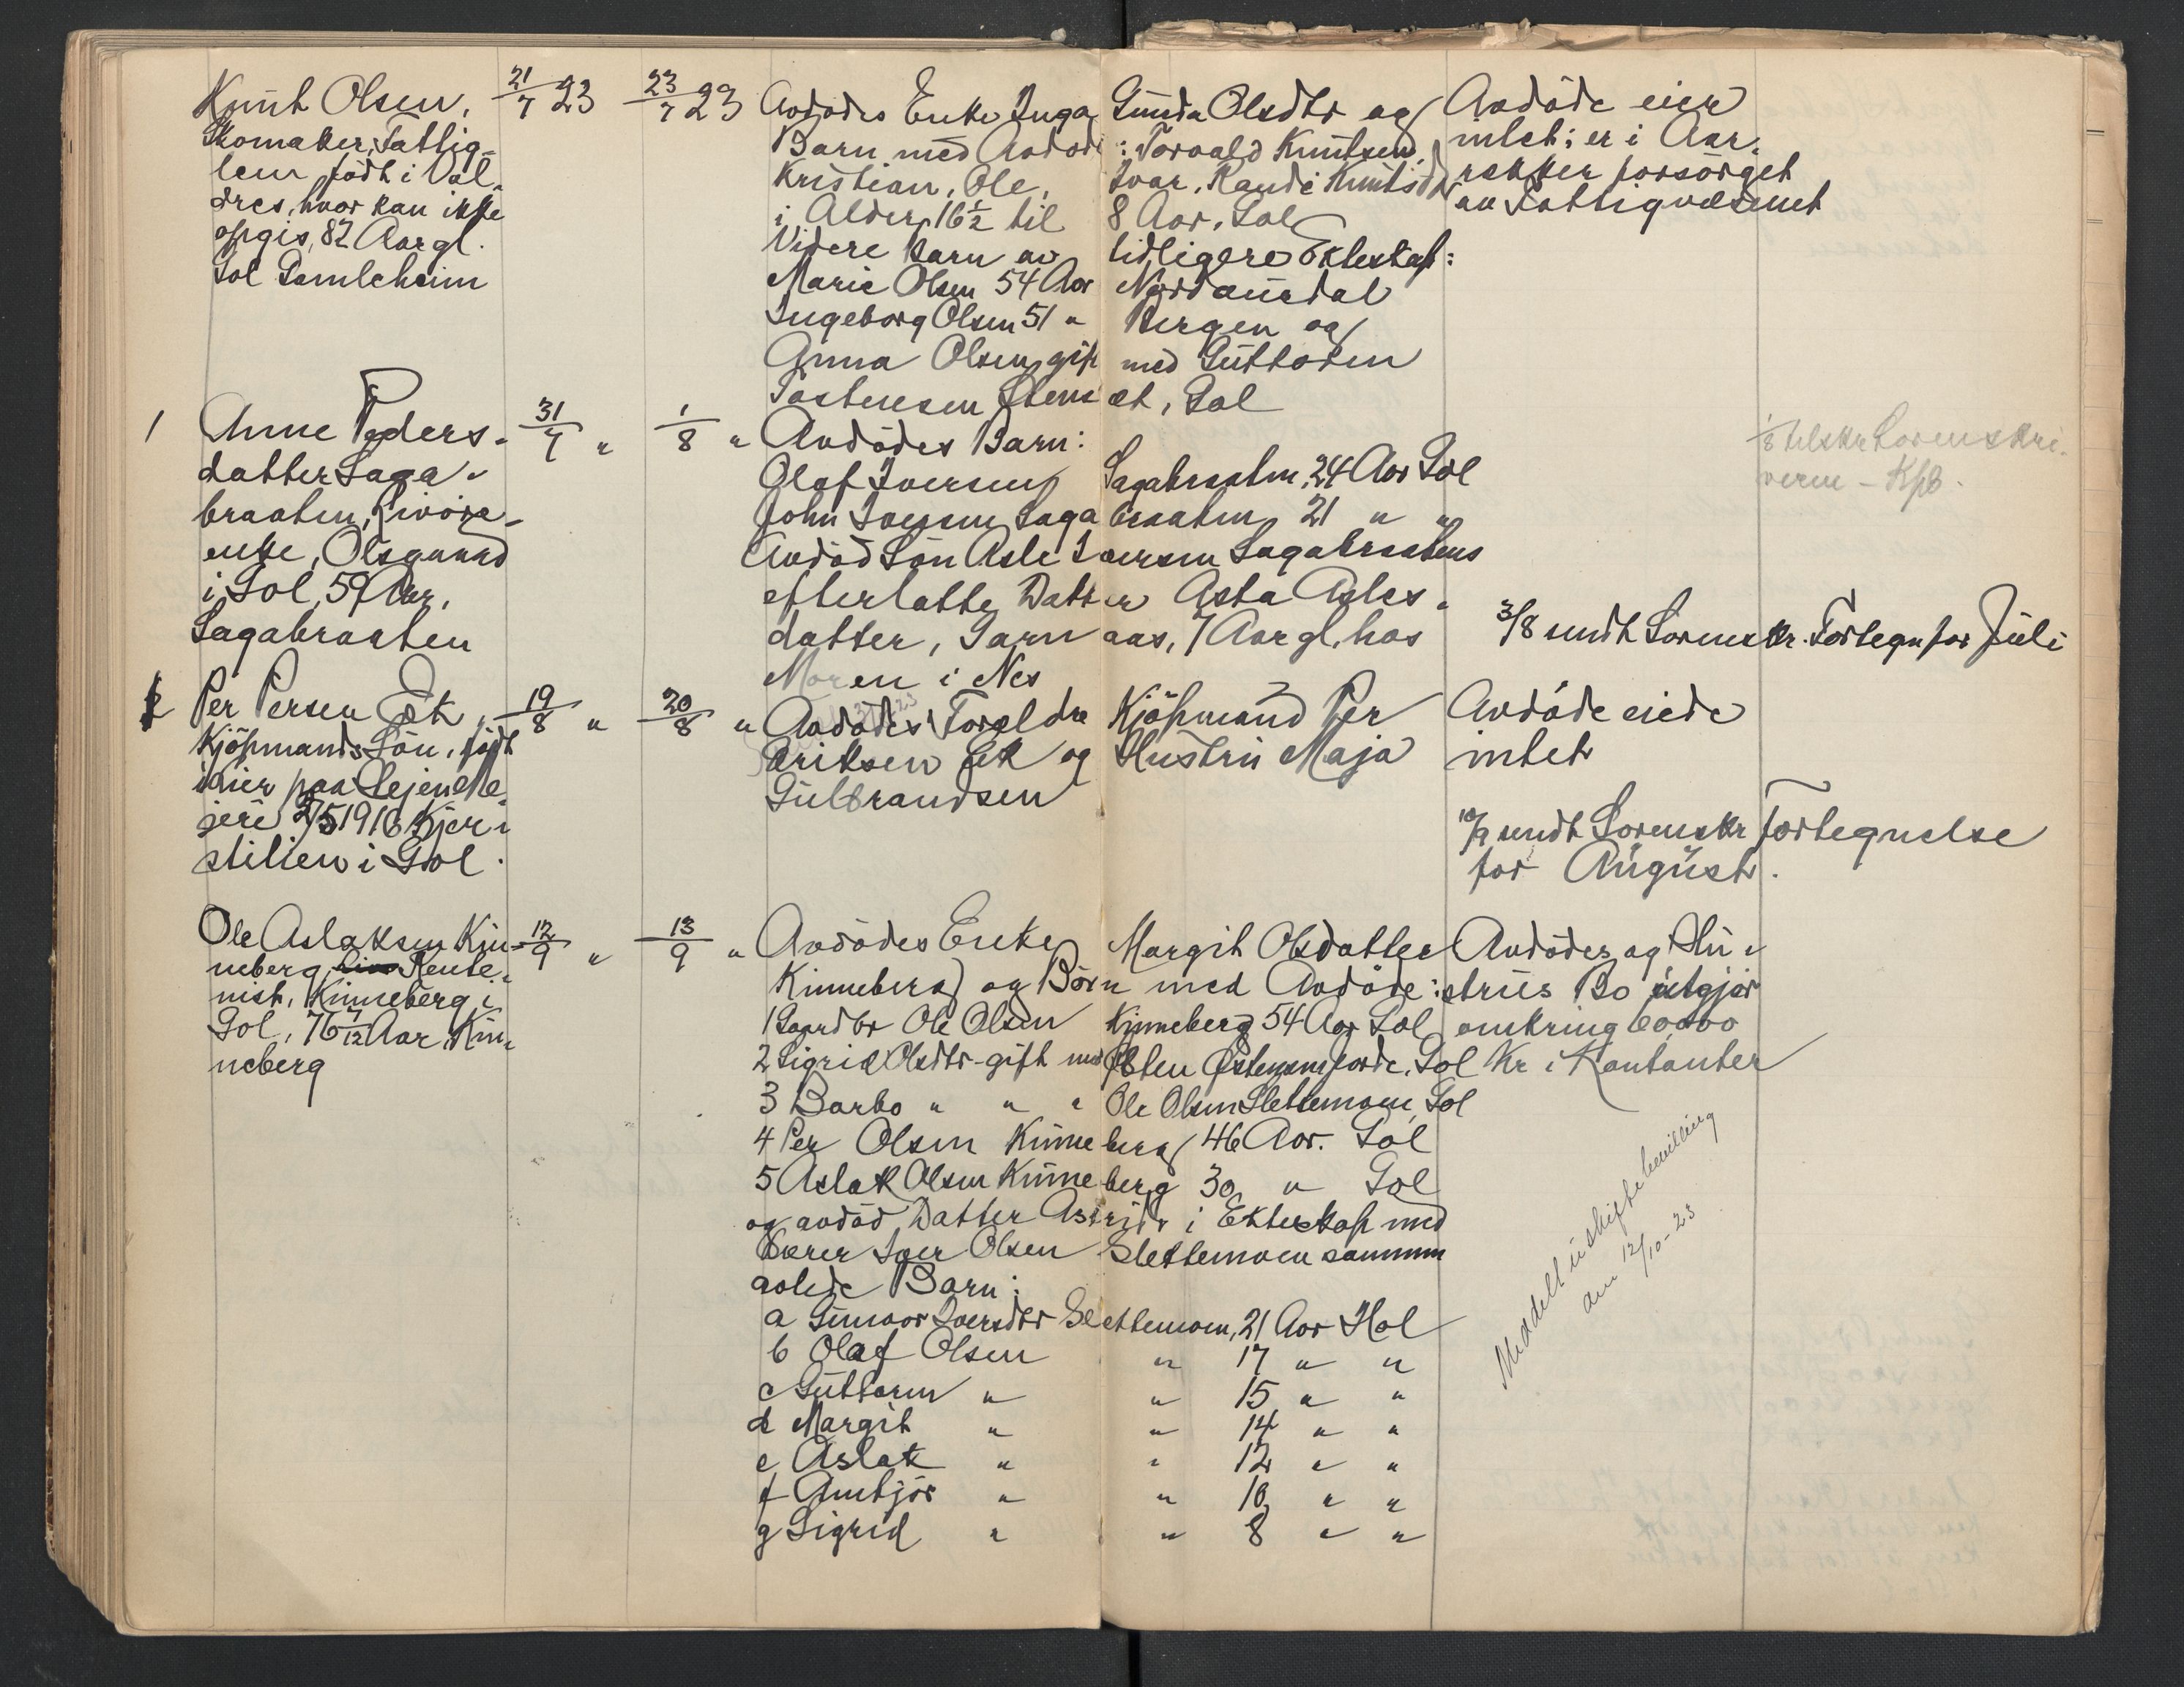 Knut Olsen, 21/7 23 23/7 23 Avdödes Enke Inga Gunda Olsdtr og Avdöde eier
Skomaker, Fattig- Barn med Avdöde: Torvald Knutsen, intet; er i Aar-
lem födt i Val- Kristian, Ole, Ivar, Randi Knutsdtr rekker forsörget
dres, hvor kan ikke i Alder 16½ til 8 Aar, Gol av Fattigvæsenet
opgis, 82 Aar gl. Videre Barn av tidligere Ekteskap:
Gol Gamleheim Marie Olsen 54 Aar Nordaurdal
Ingeborg Olsen 51 " Bergen og
Anna Olsen gift med Guttorm
Tostensen, Gol
1 Anne Peders- 31/7 " 1/8 " Avdödes Barn:
datter Saga- Olaf Iversen Sagabraaten, 24 Aar Gol 1/8 tilskr Sorenskri-
braaten, Livöre- John Iversen Sagabraaten 21 " " veren - Kpb.
enke, Olsgaard Avdöd Sön Asle Iversen Sagabraatens
i Gol, 59 Aar, efterlatte Datter Asta Asles-
Sagabraaten datter, Garnaas, 7 Aar gl. hos 3/8 sendt Sorenskr. Fortegn for Juli
Moren i Nes
2 Per Persen Ek, 19/8 " 20/8 " Avdödes Foreldre Kjöpmand Per Avdöde eiede
Kjöpmands Sön, födt Eriksen Ek og Hustru Maja intet
paa Gulbrandsen
1916 10/9 sendt Sorenskr Fortegnelse
i Gol. for August.
Ole Aslaksen Kin- 12/9 " 13/9 " Avdödes Enke Margit Olsdatter Avdödes og Hu-
neberg, Rente- Kinneberg og Börn med Avdöde: strus Bo utgjör
nist, Kinneberg i 1 Gaardbr Ole Olsen Kinneberg 54 Aar Gol omkring 60000
Gol, 76 7/12 Aar Kin- 2 Sigrid Olsdtr gift med Sten Östensen, Gol Kr i Kontanter
neberg 3 Barbo " " " Ole Olsen Slettemoen, Gol
4 Per Olsen Kinneberg 46 Aar. Gol
5 Aslak Olsen Kinneberg 30 " Gol
og avdöd Datter Astrids i Ekteskap med
Lærer Iver Olsen Slettemoen sammen
avlede Barn:
a Gunvor Iversdtr Slettemoen, 21 Aar Hol
b Olaf Olsen " 17 " "
c Guttorm " " 15 " "
d Margit " " 14 " "
e Aslak " " 12 " "
f Annbjör " " 10 " "
g Sigrid " " 8 " "
Meddelt uskiftebevilling
den 12/10-23